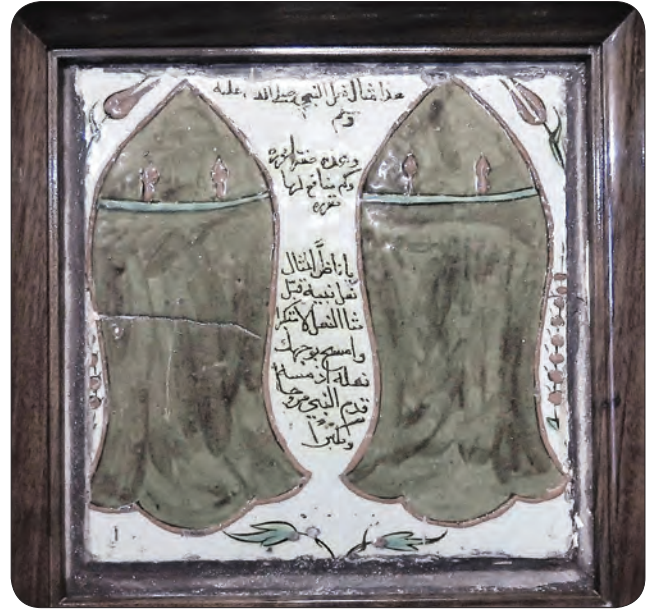 هذا مثال نعل النبي صلى الله عليه
وسلم
وهذه صفتها
وكم منافع لها
مقرره
يا ناظرًا لمثال
نعل نبيه قبل
مثال النعل لا متكبرا
وامسح بوجهك
نعله اذ مسه
قدم النبي مروحا
ومكبرا